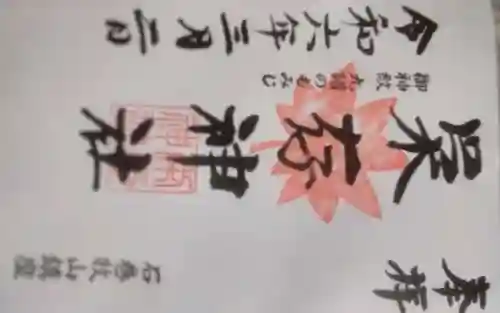 奉拝
石巻牧山鎮座
神社
御神紋 のもみじ
令和六年三月二日